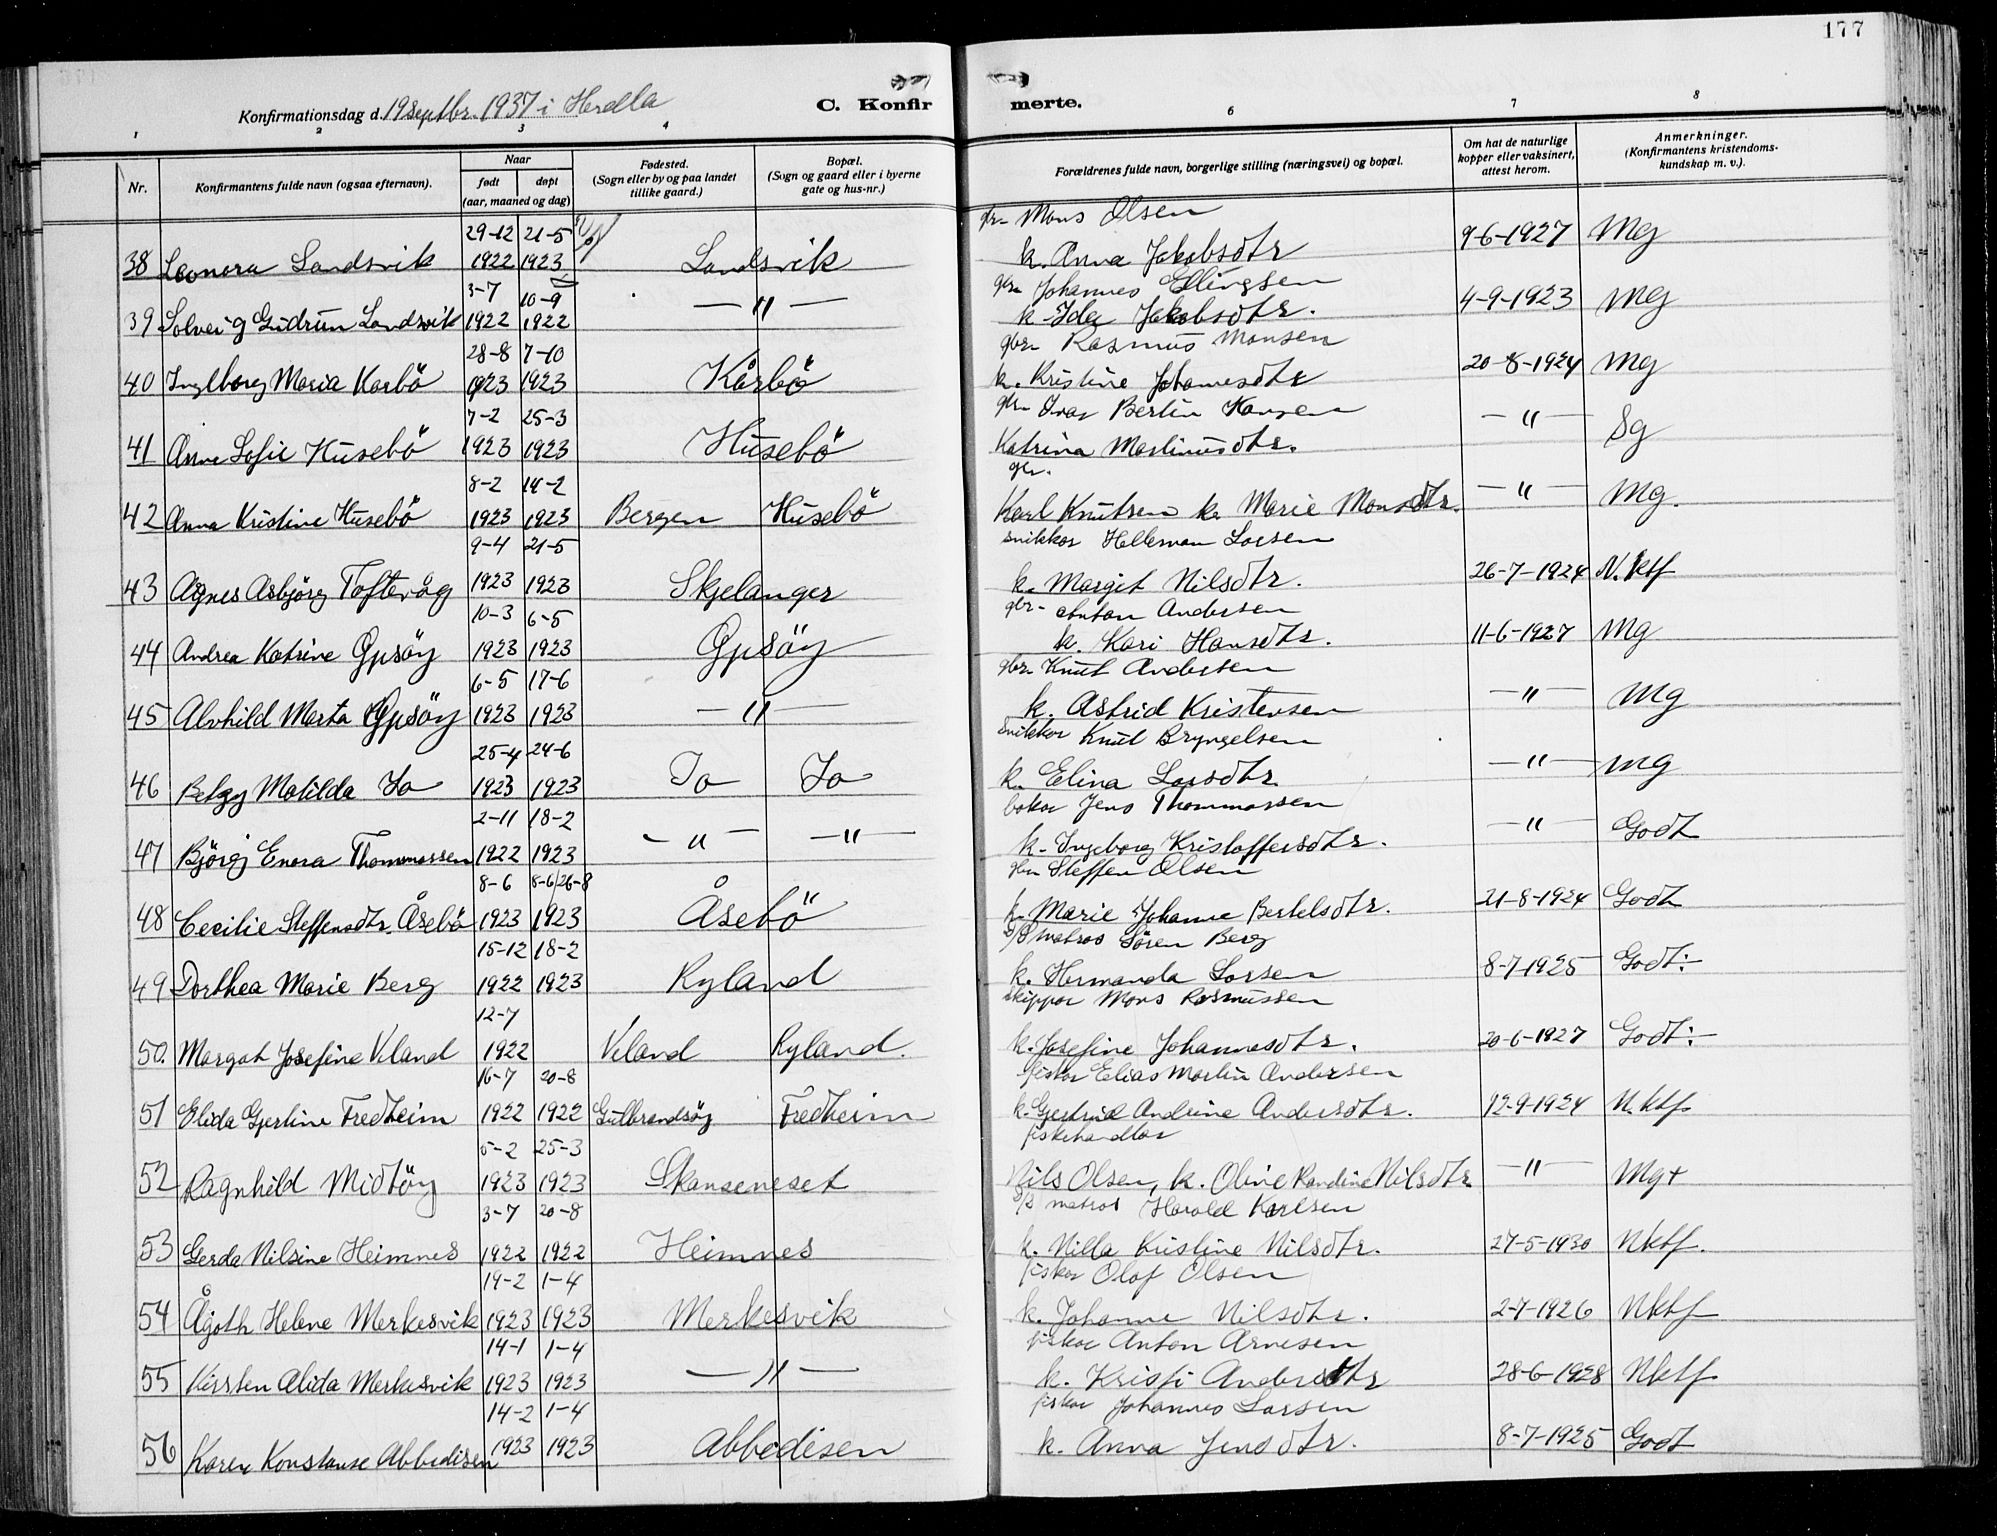 177
Konfirmationsdag d. 19 septbr. 1937 i Herdla
C. Konfirmerte.
1 2 3 4 6 7 8
Nr.
Konfirmantens fulde navn (ogsaa efternavn).
Naar
født døpt
(aar, maaned og dag)
Fødested.
(Sogn eller by og paa landet
tillike gaard.)
Bopæl.
(Sogn og gaard eller i byerne
gate og hus-nr.)
Forældrenes fulde navn, borgerlige stilling (næringsvei) og bopæl.
Om hat de naturlige
kopper eller vaksinert,
attest herom.
Anmerkninger.
(Konfirmantens kristendoms-
kundskap m. v.).
29-12 21-5 gbr. Mons Olsen
38 Leonora Landsvik 1922 1923 Landsvik k. Anna Jakobsdtr 9-6-1927 Mg
3-7 10-9 gbr. Johannes Ellingsen
39 Solveig Gudrun Landsvik 1922 1922 —"— k. Ida Jakobsdtr. 4-9-1923 Mg
28-8 7-10 gbr. Rasmus Monsen
40 Ingeborg Maria Karbö 1923 1923 Kårbö k. Kristine Johannesdtr 20-8-1924 Mg
7-2 25-3 gbr. Ivar Bertin Hansen
41 Anna Sofie Husebö 1923 1923 Husebö Katrina Martinusdtr. —"— Sg
8-2 14-2 gbr.
42 Anna Kristine Husebö 1923 1923 Bergen Husebö Karl Knutsen k. Marie Monsdtr. —"— Mg.
9-4 21-5 snikkar Helleman Larsen
43 Agnes Asbjörg Toftevåg 1923 1923 Skjelanger k. Margit Nilsdtr. 26-7-1924 N. ktf
10-3 6-5 gbr- Anton Andersen
44 Andrea Katrine Gpsöy 1923 1923 Gpsöy k. Kari Hansdtr. 11-6-1927 Mg
6-5 17-6 gbr. Knut Andersen
45 Alvhild Marta Gpsöy 1923 1923 —"— k. Astrid Kristensen —"— Mg
25-4 24-6 snikkar Knut Bryngelsen
46 Betzy Matilda Io 1923 1923 Io Io k. Elina Larsdtr. —"— Mg
2-11 18-2 bakar Jens Thommassen
47 Björg Enora Thommassen 1922 1923 —"— —"— k. Ingeborg Kristoffersdtr. —"— Godt
8-6 8-6/26-8 gbr Steffen Olsen
48 Cecilie Steffensdtr. Åsebö 1923 1923 Åsebö k. Marie Johanne Bertelsdtr. 21-8-1924 Godt
15-12 18-2 matros Sören Berg
49 Dorthea Marie Berg 1922 1923 Ryland k. Hermanda Larsen 8-7-1925 Godt÷
12-7 skippar Mons Rasmussen
50. Margot Josefine Veland 1922 Veland Ryland. k. Josefine Johannesdtr. 20-6-1927 Godt÷
16-7 20-8 fiskar Elias Martin Andersen
51 Elida Gjertine Fredheim 1922 1922 Gulbrandsöy Fredheim k. Gjertrud Andrine Andersdtr. 12-9-1924 N. ktf.
5-2 25-3 fiskehandlar
52 Ragnhild Midtöy 1923 1923 Skanseneset Nils Olsen, k. Oline Randine Nilsdtr —"— Mg+
3-7 20-8 matros Harald Karlsen
53 Gerda Nilsine Heimnes 1922 1922 Heimnes k. Nilla Kristine Nilsdtr. 27-5-1930 Nktf.
14-2 1-4 fiskar Olaf Olsen
54 Ågoth Helene Merkesvik 1923 1923 Merkesvik k. Johanne Nilsdtr. 2-7-1926 Nktf
14-1 1-4 fiskar Anton Arnesen
55 Kirsten Alida Merkesvik 1923 1923 —"— k. Kristi Andersdtr 28-6-1928 Nktf
14-2 1-4 fiskar Johannes Larsen
56 Karen Konstanse Abbedisen 1923 1923 Abbedisen k. Anna Jensdtr. 8-7-1925 Godt